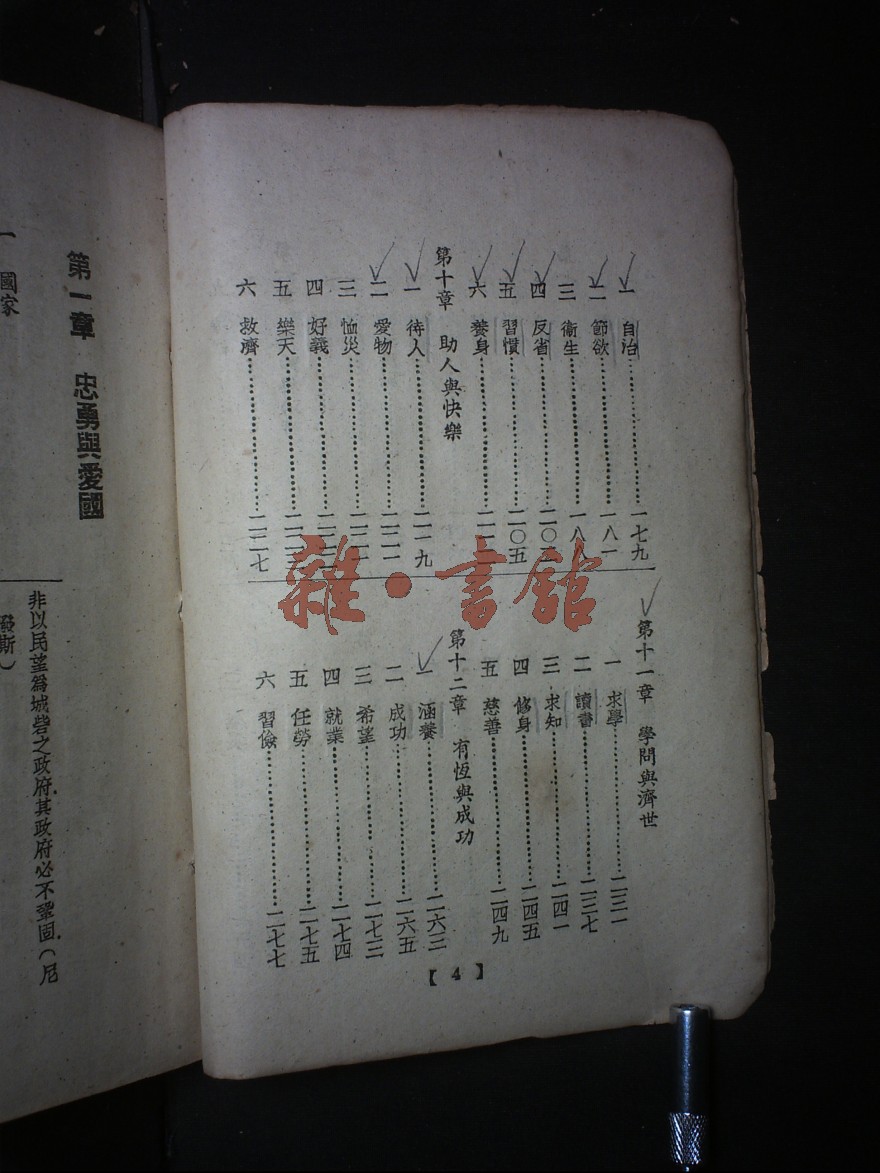 一 自治……一七九
二 節欲……一八一
三 衛生……一八
四 反省……二〇
五 習慣……二〇五
六 養身……二一
第十章 助人與快樂
一 待人……二一九
二 愛物……二二一
三 恤災……二二
四 好義……二二
五 樂天……二二
六 救濟……二二七
第十一章 學問與濟世
一 求學……二三一
二 讀書……二三七
三 求知……二四一
四 修身……二四五
五 慈善……二四九
第十二章 有恆與成功
一 涵養……二六三
二 成功……二六五
三 希望……二七三
四 就業……二七四
五 任勞……二七五
六 習儉……二七七
【4】
雜·書館
第一章 忠勇與愛國
非以民望爲城砦之政府,其政府必不鞏固。(尼
斯)
一 國家